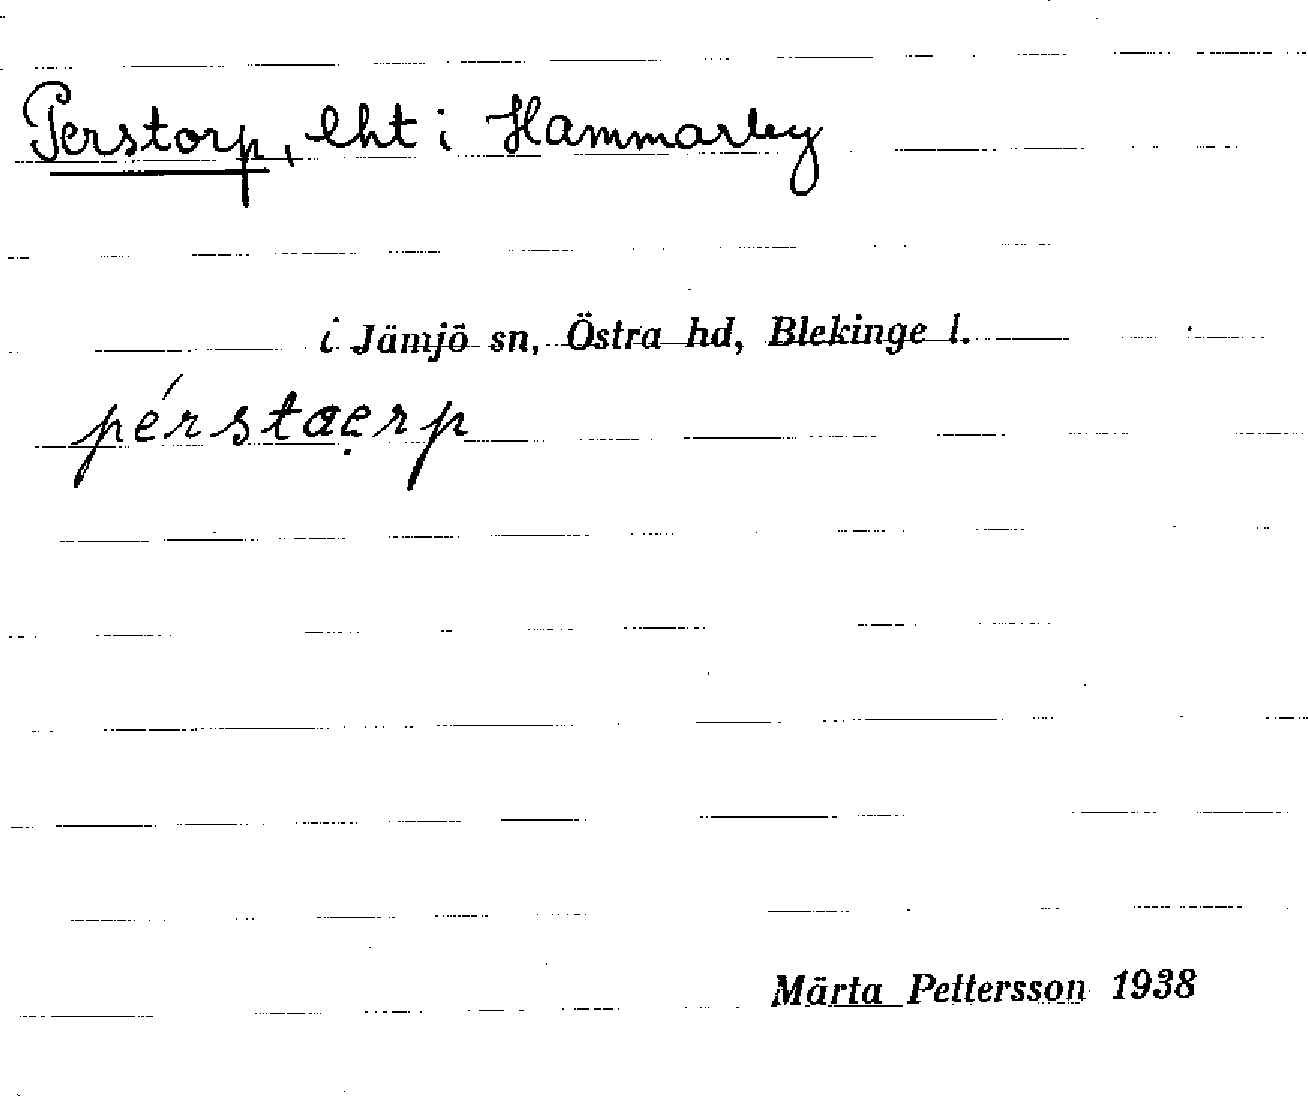 Perstorp, lht i Hammarby
i Jämjö sn, Östra hd, Blekinge l.
pérstaẹrp
Märta Pettersson 1938